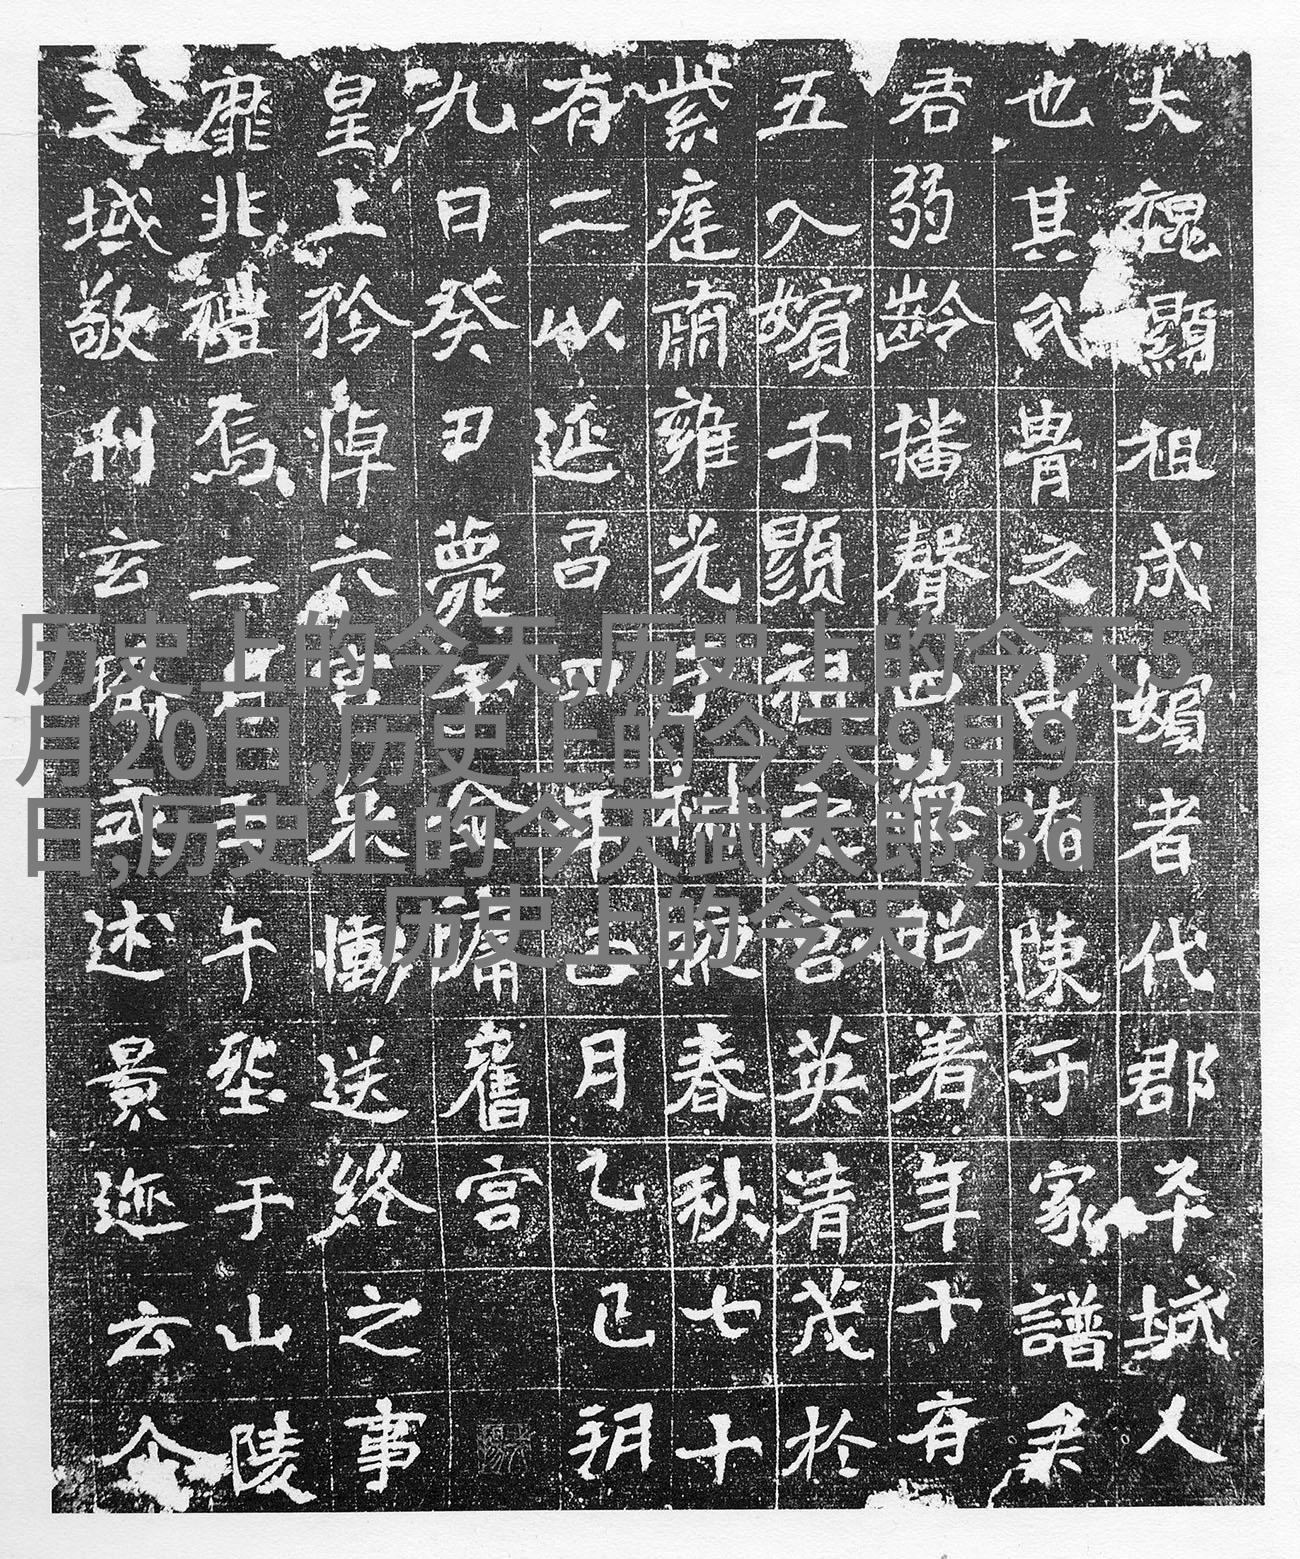 大魏顯祖成嬪者代郡平城人
也其氏胄之由陳于家譜
君弱齡播聲四德昭著年十有
五入嬪于顯祖夫宮英清茂於
紫庭肅雍光于椒掖春秋七十
有二以延昌四年正月乙巳朔
九日癸丑薨于金墉舊宮
皇上矜悼六宮哀慟送終之事
靡非禮焉二月壬午塟于山陵
之域敬刊玄述景迹云尒
历史上的今天,历史上的今天5
月20日,历史上的今天9月9
日,历史上的今天武大郎,3d
历史上的今天